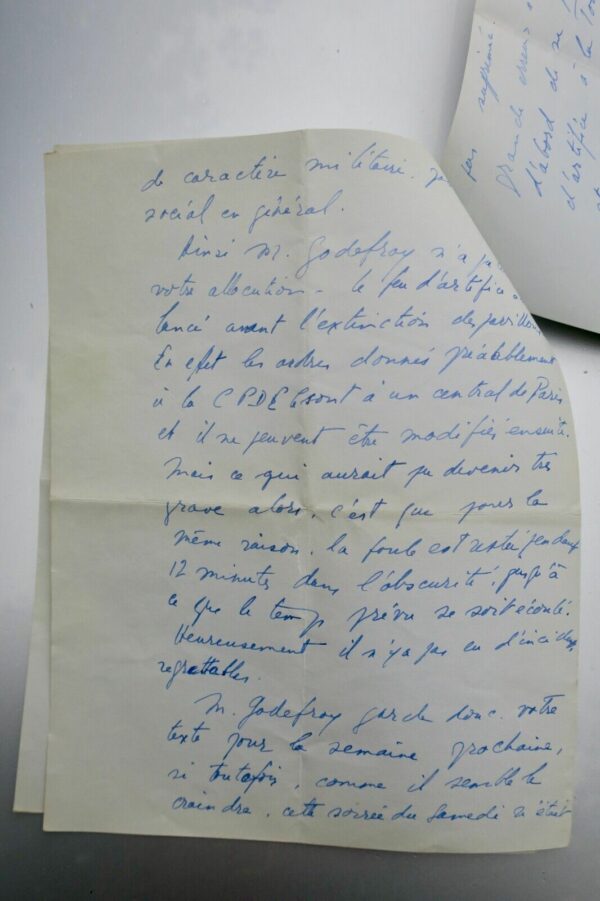 de caractère militaire,
social en général.
Ainsi M. Godefroy n'a
votre allocution - le feu d'artifice
lancé avant l'extinction des
En effet les ordres donnés préalablement
à la CPDE sont à un central de Paris
et il ne peuvent être modifiés ensuite.
Mais ce qui aurait pu devenir très
grave alors, c'est que pour la
même raison, la foule est restée pendant
12 minutes dans l'obscurité, jusqu'à
ce que le temps prévu se soit écoulé.
Heureusement il n'y a pas eu d'incidents
regrettables.
M. Godefroy garde donc votre
texte pour la semaine prochaine,
si toutefois, comme il semble le
craindre, cette soirée du Samedi
pas supprimé.
Grande erreur
d'abord de se
d'artifice à la